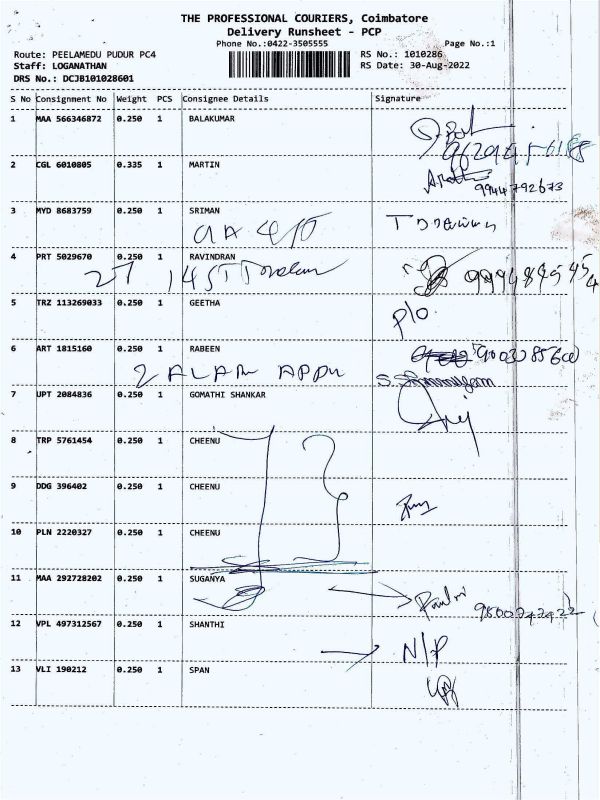 THE PROFESSIONAL COURIERS, Coimbatore
Delivery Runsheet - PCP
Phone No.:0422-3505555 Page No.:1
Route: PEELAMEDU PUDUR PC4 RS No.: 1010286
Staff: LOGANATHAN RS Date: 30-Aug-2022
DRS No.: DCJB101028601
S No Consignment No Weight PCS Consignee Details Signature
1 MAA 566346872 0.250 1 BALAKUMAR
2 CGL 6010805 0.335 1 MARTIN
9944792673
3 MYD 8683759 0.250 1 SRIMAN
4 PRT 5029670 0.250 1 RAVINDRAN
27
5 TRZ 113269033 0.250 1 GEETHA
P/O
6 ART 1815160 0.250 1 RABEEN
7 UPT 2084836 0.250 1 GOMATHI SHANKAR
8 TRP 5761454 0.250 1 CHEENU
9 DDG 396402 0.250 1 CHEENU
10 PLN 2220327 0.250 1 CHEENU
11 MAA 292728202 0.250 1 SUGANYA
12 VPL 497312567 0.250 1 SHANTHI
N/P
13 VLI 190212 0.250 1 SPAN